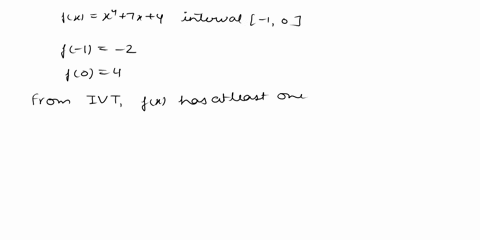 f(x) = x⁴+7x+4 interval [-1, 0]
f(-1) = -2
f(0) = 4
From IVT, f(x) has atleast one